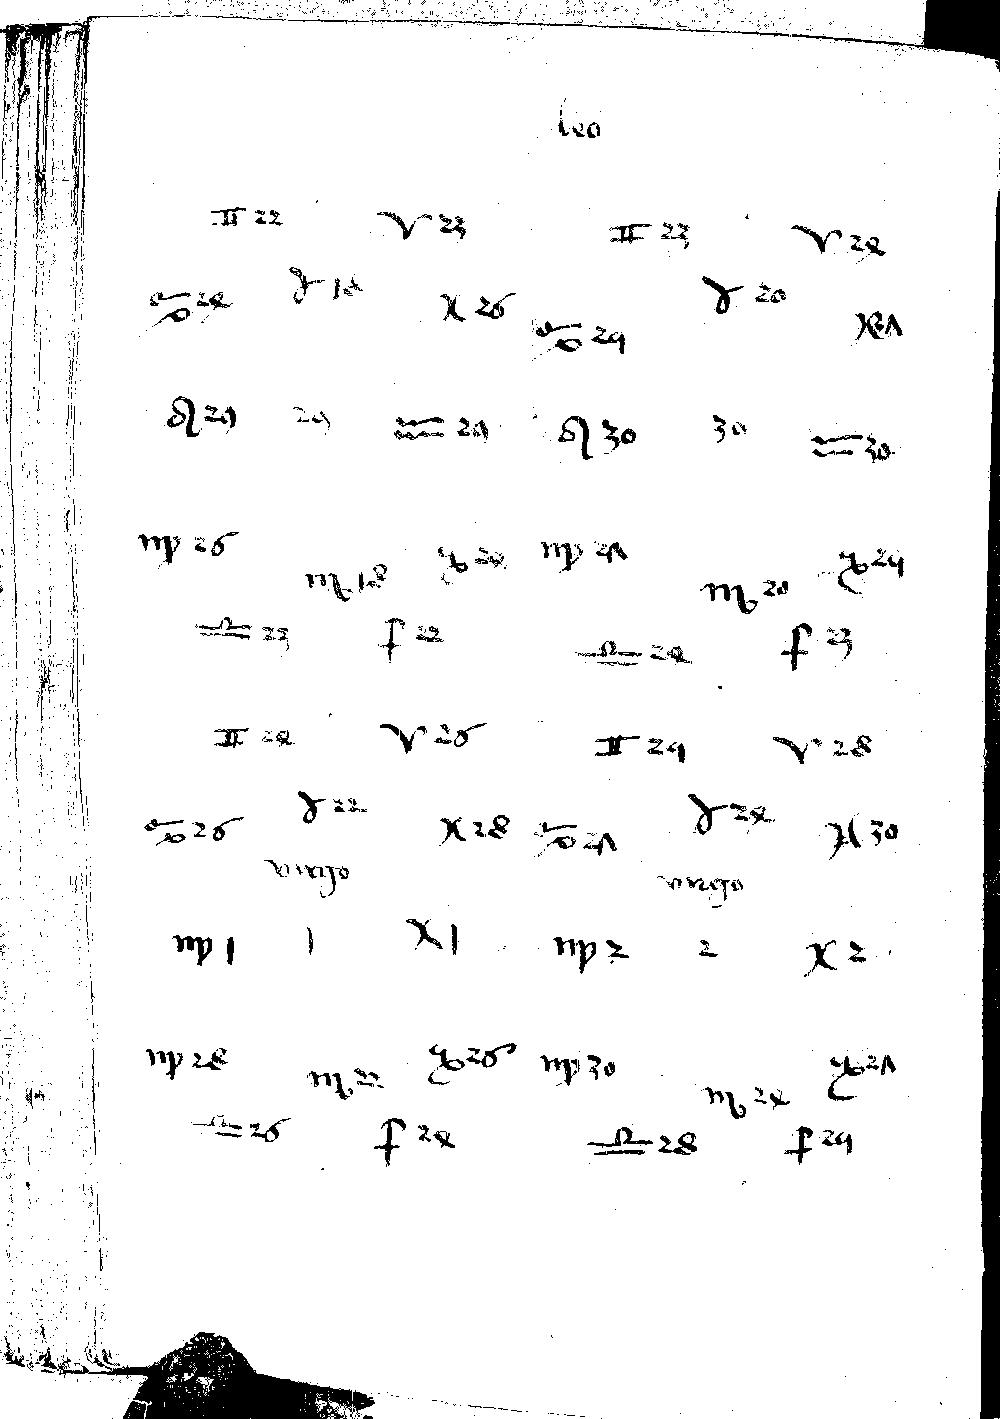 leo
♊ 22 ♈ 23 ♊ 23 ♈ 24
♋ 24 ♉ 18 ♓ 26 ♋ 25 ♉ 20 ♓ 27
♌ 29 29 ♒ 29 ♌ 30 30 ♒ 30
♍ 26 ♏ 18 ♑ 24 ♍ 27 ♏ 20 ♑ 25
♎ 23 ♐ 22 ♎ 24 ♐ 23
♊ 24 ♈ 26 ♊ 25 ♈ 28
♋ 26 ♉ 22 ♓ 28 ♋ 27 ♉ 24 ♓ 30
virgo virgo
♍ 1 1 ♓ 1 ♍ 2 2 ♓ 2
♍ 28 ♏ 22 ♑ 26 ♍ 30 ♏ 24 ♑ 27
♎ 26 ♐ 24 ♎ 28 ♐ 25